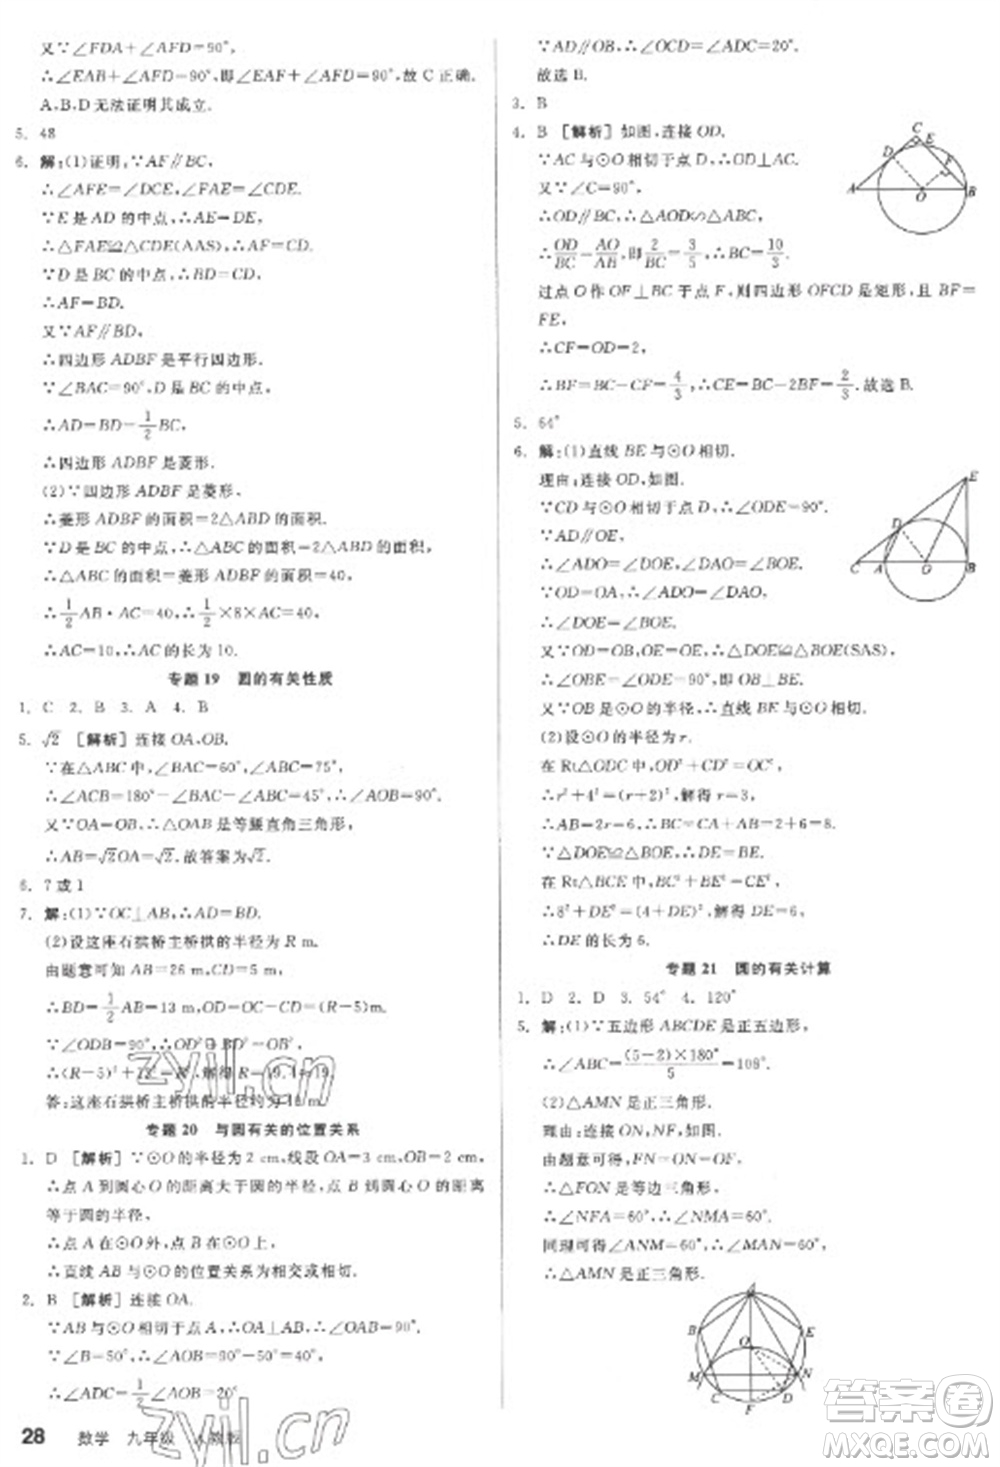 又∵∠FDA+∠AFD=90°,
∴∠EAB+∠AFD=90°,即∠EAF+∠AFD=90°,故 C 正确.
A,B,D 无法证明其成立.
5. 48
6. 解:(1)证明,∵AF∥BC,
∴∠AFE=∠DCE,∠FAE=∠CDE.
∵E 是 AD 的中点,∴AE=DE,
∴△FAE≌△CDE(AAS),∴AF=CD.
∵D 是 BC 的中点,∴BD=CD,
∴AF=BD.
又∵AF∥BD,
∴四边形 ADBF 是平行四边形.
∵∠BAC=90°,D 是 BC 的中点,
∴AD=BD=1/2BC,
∴四边形 ADBF 是菱形.
(2)∵四边形 ADBF 是菱形,
∴菱形 ADBF 的面积=2△ABD 的面积.
∵D 是 BC 的中点,∴△ABC 的面积=2△ABD 的面积,
∴△ABC 的面积=菱形 ADBF 的面积=40,
∴1/2AB·AC=40,∴1/2×8×AC=40,
∴AC=10,∴AC 的长为 10.
专题 19 圆的有关性质
1. C 2. B 3. A 4. B
5. √2 [解析]连接 OA,OB.
∵在△ABC 中,∠BAC=60°,∠ABC=75°,
∴∠ACB=180°-∠BAC-∠ABC=45°,∴∠AOB=90°.
又∵OA=OB,∴△OAB 是等腰直角三角形,
∴AB=√2OA=√2.故答案为√2.
6. 7 或 1
7. 解:(1)∵OC⊥AB,∴AD=BD.
(2)设这座石拱桥主桥拱的半径为 R m.
由题意可知 AB=26 m,CD=5 m,
∴BD=1/2AB=13 m,OD=OC-CD=(R-5)m.
∵∠ODB=90°,∴OD²+BD²=OB²,
∴(R-5)²+13²=R²,解得 R=19.4≈19.
答:这座石拱桥主桥拱的半径约为 19 m.
专题 20 与圆有关的位置关系
1. D [解析]∵⊙O 的半径为 2 cm,线段 OA=3 cm,OB=2 cm,
∴点 A 到圆心 O 的距离大于圆的半径,点 B 到圆心 O 的距离
等于圆的半径,
∴点 A 在⊙O 外,点 B 在⊙O 上,
∴直线 AB 与⊙O 的位置关系为相交或相切.
2. B [解析]连接 OA.
∵AB 与⊙O 相切于点 A,∴OA⊥AB,∴∠OAB=90°.
∵∠B=50°,∴∠AOB=90°-50°=40°,
∴∠ADC=1/2∠AOB=20°.
∵AD∥OB,∴∠OCD=∠ADC=20°.
故选 B.
3. B
4. B [解析]如图,连接 OD.
∵AC 与⊙O 相切于点 D,∴OD⊥AC.
又∵∠C=90°,
∴OD∥BC,∴△AOD∽△ABC,
∴OD/BC=AO/AB,即2/BC=3/5,∴BC=10/3.
过点 O 作 OF⊥BC 于点 F,则四边形 OFCD 是矩形,且 BF=
FE,
∴CF=OD=2,
∴BF=BC-CF=4/3,∴CE=BC-2BF=2/3.故选 B.
5. 64°
6. 解:(1)直线 BE 与⊙O 相切.
理由:连接 OD,如图.
∵CD 与⊙O 相切于点 D,∴∠ODE=90°.
∵AD∥OE,
∴∠ADO=∠DOE,∠DAO=∠BOE.
∵OD=OA,∴∠ADO=∠DAO,
∴∠DOE=∠BOE.
又∵OD=OB,OE=OE,∴△DOE≌△BOE(SAS),
∴∠OBE=∠ODE=90°,∴OB⊥BE.
又∵OB 是⊙O 的半径,∴直线 BE 与⊙O 相切.
(2)设⊙O 的半径为 r.
在 Rt△ODC 中,OD²+CD²=OC²,
∴r²+4²=(r+2)²,∴r=3,
∴AB=2r=6,∴BC=CA+AB=2+6=8.
∵△DOE≌△BOE,∴DE=BE.
在 Rt△BCE 中,BC²+BE²=CE²,
∴8²+DE²=(4+DE)²,解得 DE=6,
∴DE 的长为 6.
专题 21 圆的有关计算
1. D 2. D 3. 54° 4. 120°
5. 解:(1)∵五边形 ABCDE 是正五边形,
∴∠ABC=(5-2)×180°/5=108°.
(2)△AMN 是正三角形.
理由:连接 ON,NF,如图.
由题意可得,FN=ON=OF,
∴△FON 是等边三角形,
∴∠NFA=60°,∴∠NMA=60°.
同理可得∠ANM=60°,∴∠MAN=60°,
∴△AMN 是正三角形.
28 数学 九年级 人教版
zyjl.cn
zyjl.cn
答案圈